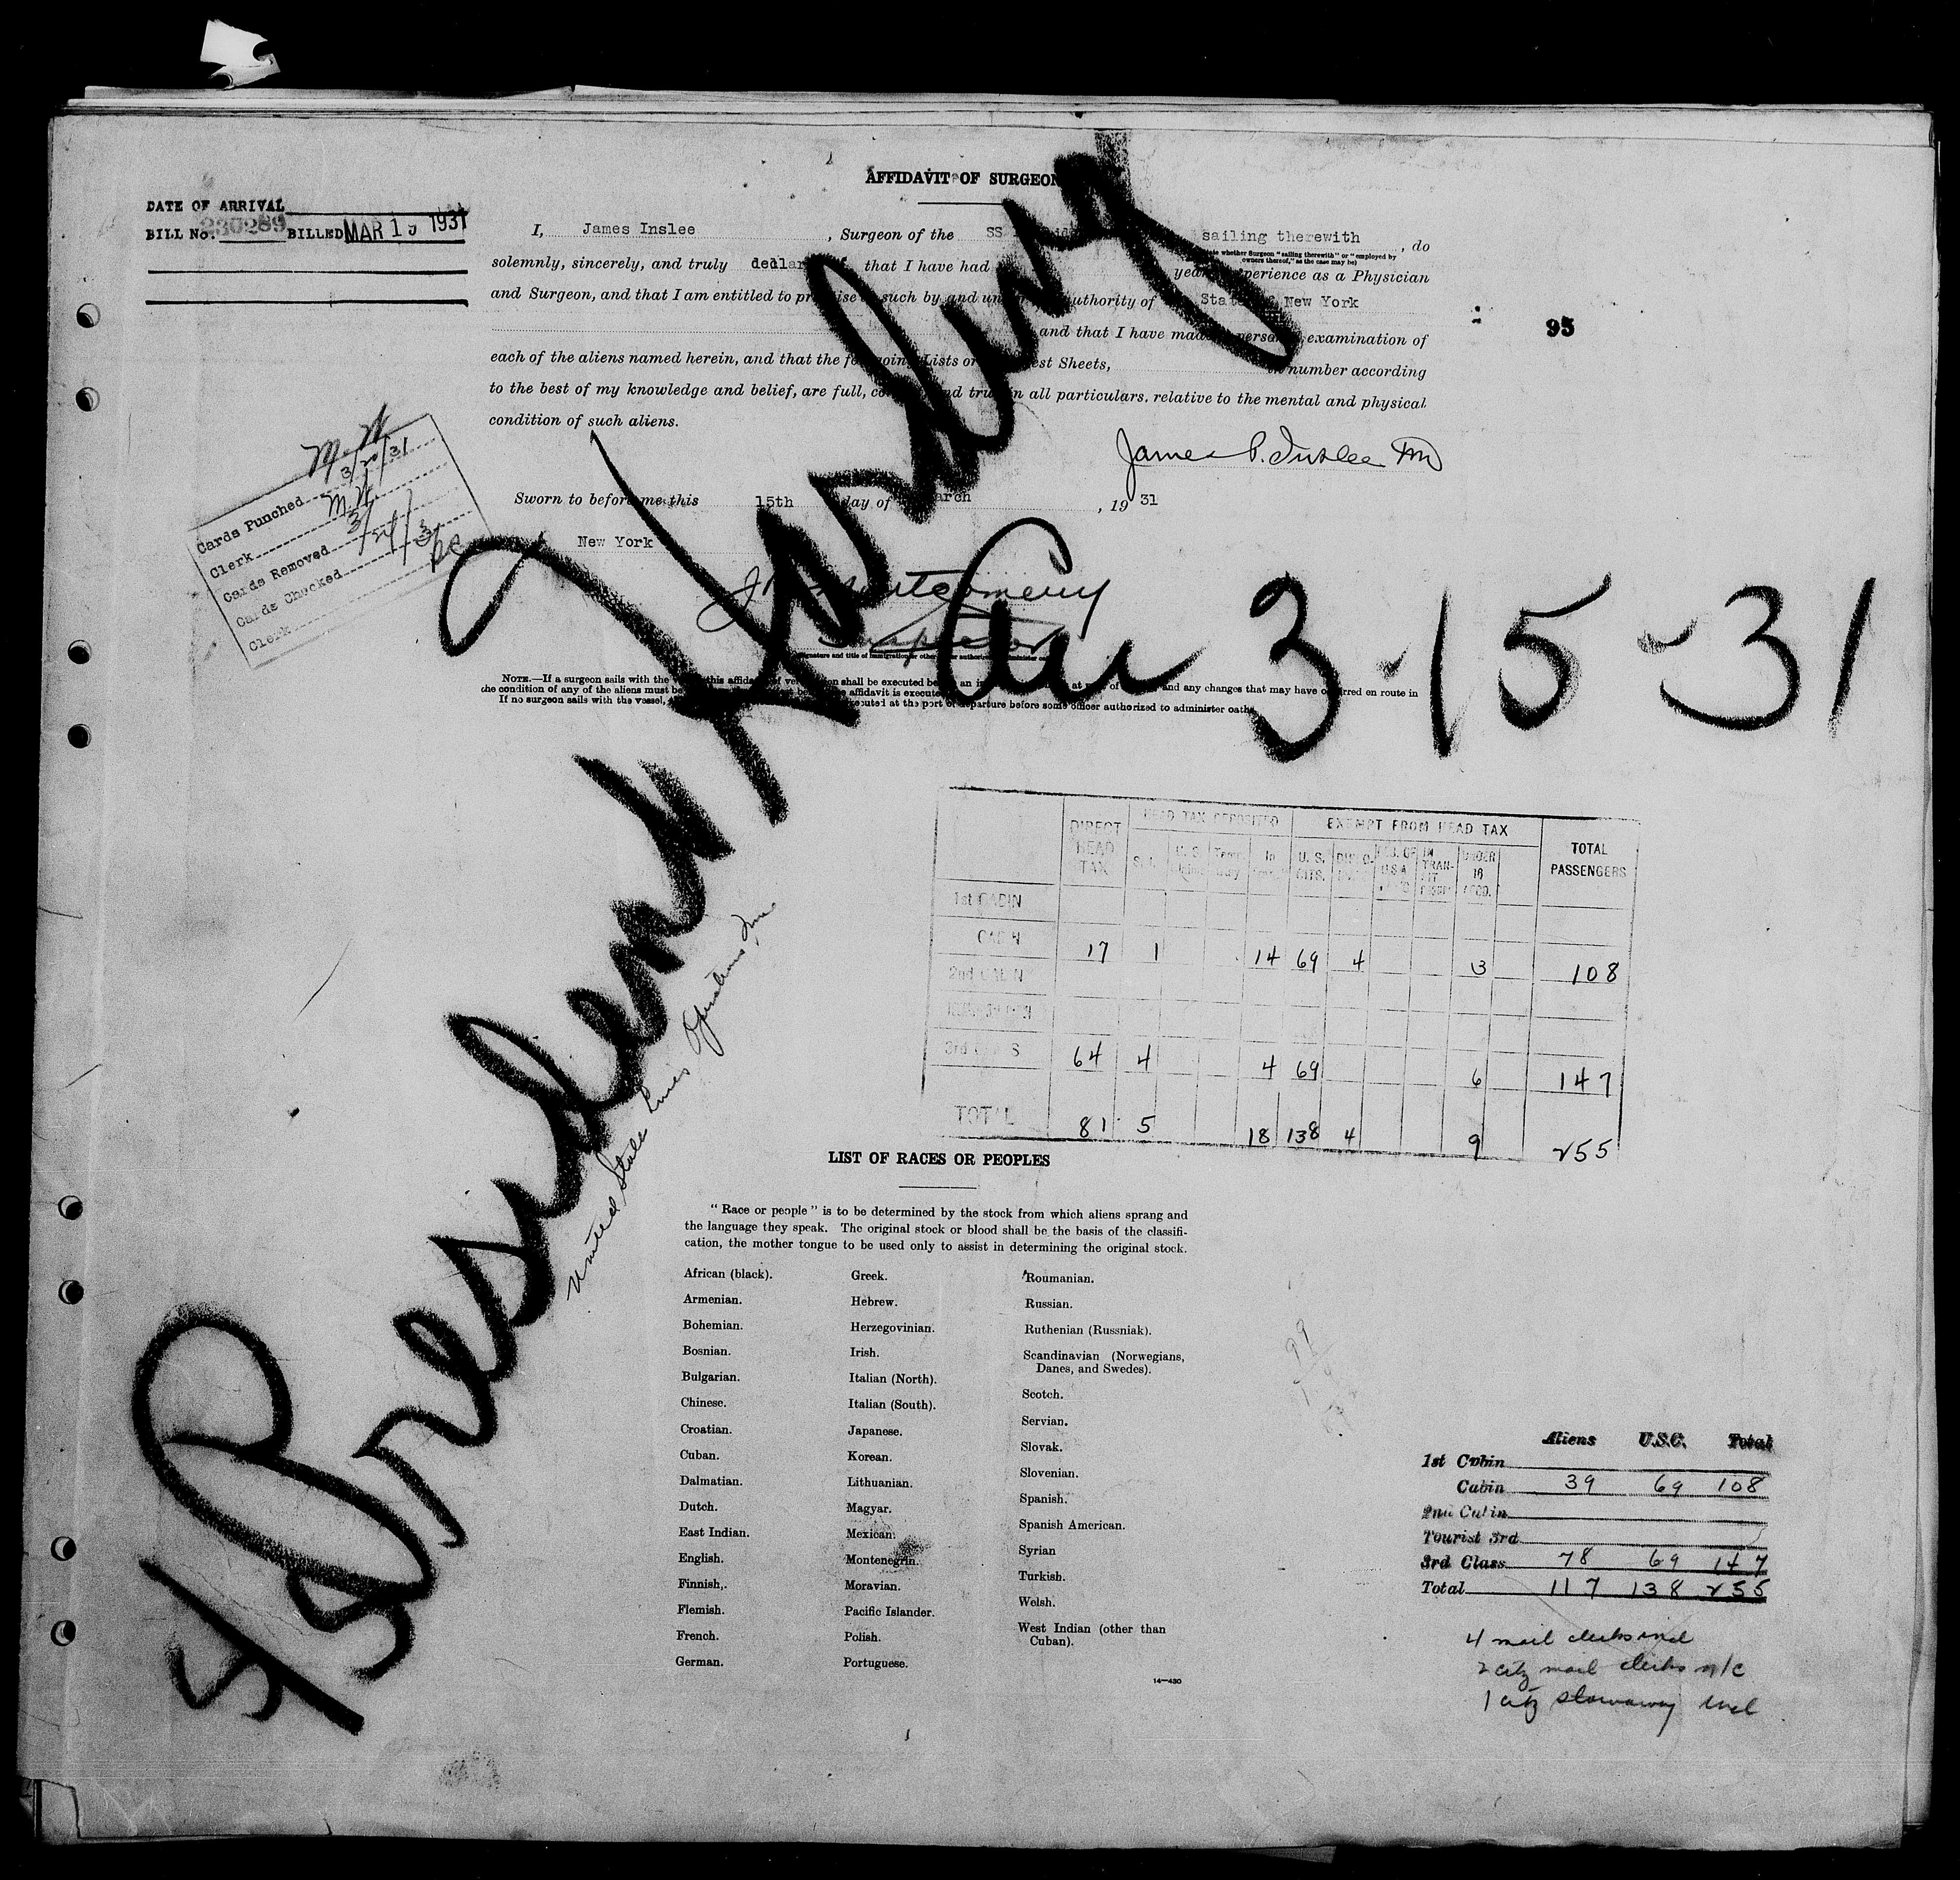 AFFIDAVIT OF SURGEON
DATE OF ARRIVAL
BILL No. 230289 BILLED MAR 19 1931
I, James Inslee , Surgeon of the SS sailing therewith , do
whether Surgeon "sailing therewith" or "employed by
owners thereof," as the case may be)
solemnly, sincerely, and truly that I have had experience as a Physician
and Surgeon, and that I am entitled to such by and authority of State New York
and that I have made personal examination of
95
each of the aliens named herein, and that the Lists or Sheets, in number according
to the best of my knowledge and belief, are full, and true in all particulars, relative to the mental and physical
condition of such aliens.
James P. Inslee MD
Sworn to before me this 15th day of March , 19 31
New York
Montgomery
Inspector
M. W.
3/20/31
Cards Punched
M. W.
Clerk
Cards Removed
Cards Checked
Clerk
SS President Harding
Arr 3-15-31
United States Lines Operations Inc
NOTE.—If a surgeon sails with the this shall be executed and any changes that may have occurred en route in
the condition of any of the aliens must be affidavit is executed
If no surgeon sails with the vessel, executed at the port of departure before some officer authorized to administer oaths
DIRECT HEAD TAX HEAD TAX DEPOSITED EXEMPT FROM HEAD TAX TOTAL PASSENGERS
U. S. CITS. UNDER 16
1st CABIN
CABIN 17 1 14 69 4 3 108
2nd CABIN
3rd CLASS 64 4 4 69 6 147
TOTAL 81 5 18 138 4 9 255
LIST OF RACES OR PEOPLES
"Race or people" is to be determined by the stock from which aliens sprang and
the language they speak. The original stock or blood shall be the basis of the classifi-
cation, the mother tongue to be used only to assist in determining the original stock.
African (black).
Armenian.
Bohemian.
Bosnian.
Bulgarian.
Chinese.
Croatian.
Cuban.
Dalmatian.
Dutch.
East Indian.
English.
Finnish.
Flemish.
French.
German.
Greek.
Hebrew.
Herzegovinian.
Irish.
Italian (North).
Italian (South).
Japanese.
Korean.
Lithuanian.
Magyar.
Mexican.
Montenegrin.
Moravian.
Pacific Islander.
Polish.
Portuguese.
Roumanian.
Russian.
Ruthenian (Russniak).
Scandinavian (Norwegians,
Danes, and Swedes).
Scotch.
Servian.
Slovak.
Slovenian.
Spanish.
Spanish American.
Syrian
Turkish.
Welsh.
West Indian (other than
Cuban).
14—430
Aliens U.S.C. Total
1st Cabin
Cabin 39 69 108
2nd Cabin
Tourist 3rd
3rd Class 78 69 147
Total 117 138 255
4 mail clerks incl
2 citz mail clerks n/c
1 citz stowaway incl